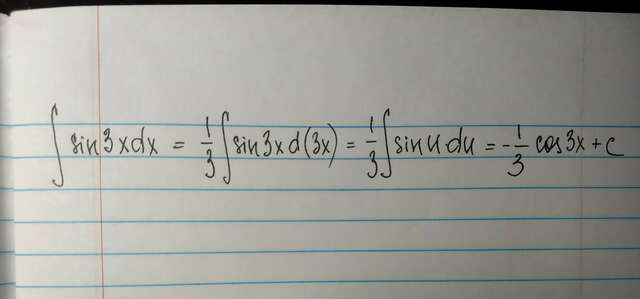 ∫ sin 3x dx = 1/3 ∫ sin 3x d(3x) = 1/3 ∫ sin u du = -1/3 cos 3x + c